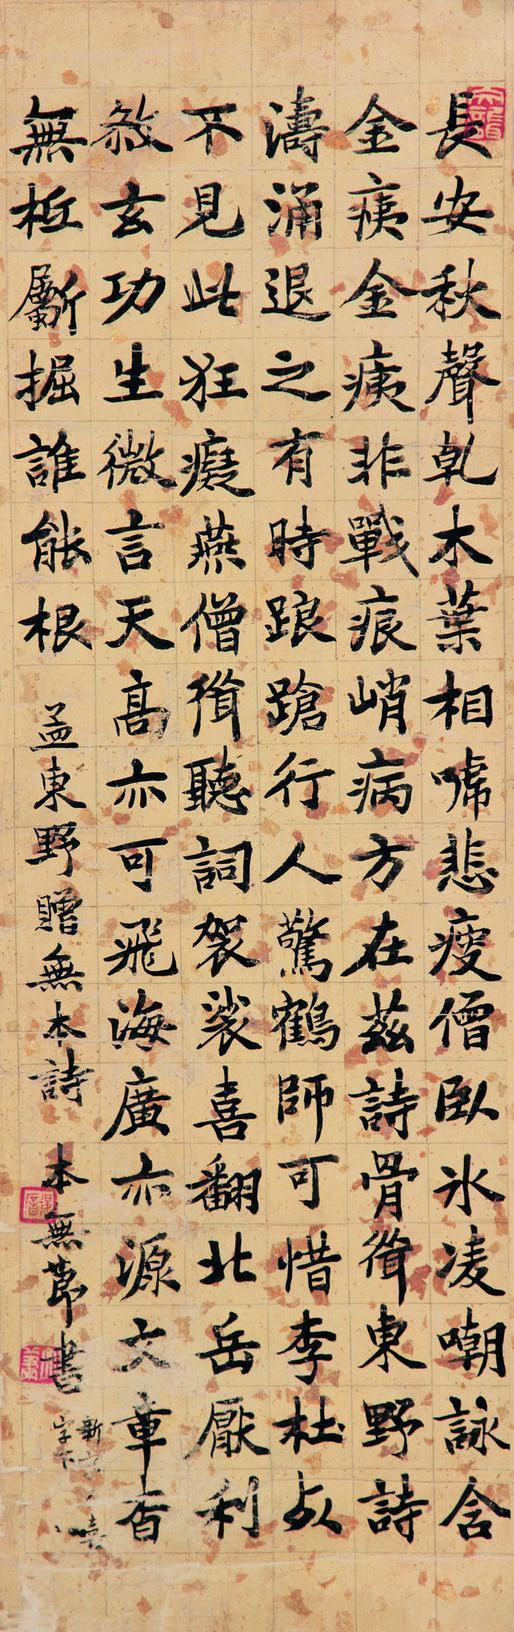 長安秋聲乹木葉相啼悲瘦僧臥氷凌嘲詠含
金痍金痍非戰痕峭病方在茲詩骨聳東野詩
濤涌退之有時踉蹌行人驚鶴師可惜李杜死
不見此狂癡燕僧聳聽詞袈裟喜翻北岳厭利
煞玄功生微言天高亦可飛海廣亦源文章杳
無柢斸掘誰能根 孟東野贈無本詩 本無節書